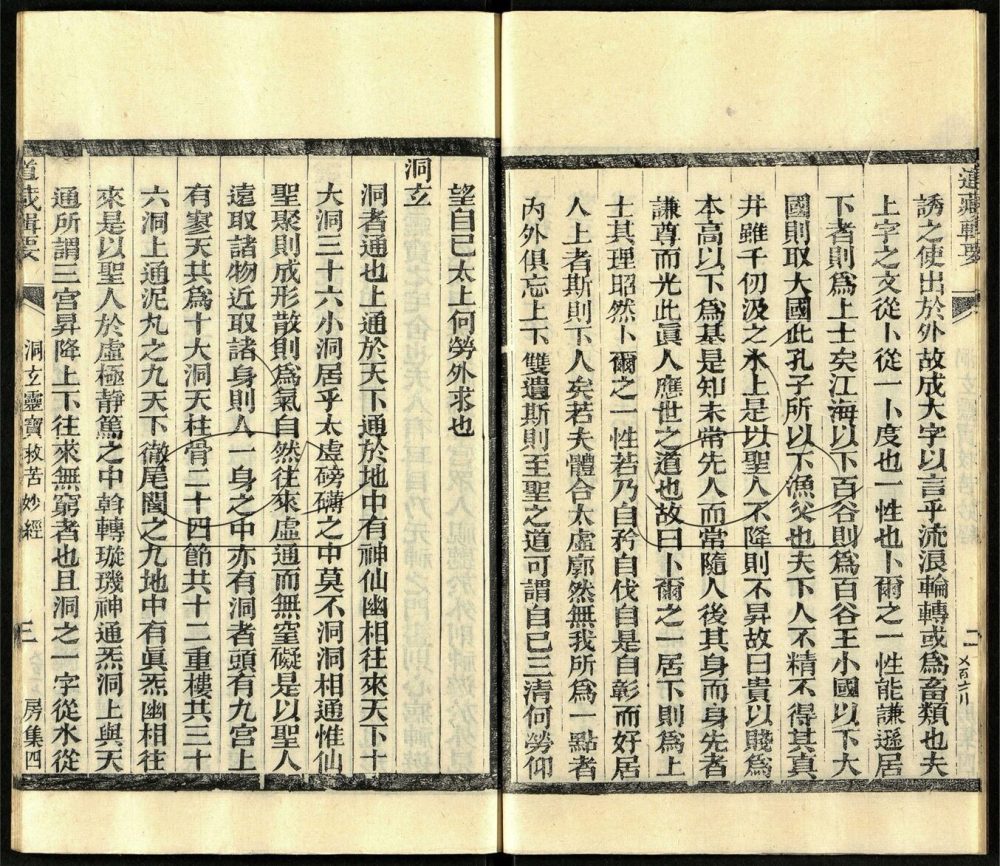 道藏輯要
二
誘之使出於外故成大字以言乎流浪輪轉或爲畜類也夫
上字之文從卜從一卜度也一性也卜爾之一性能謙遜居
下者則爲上士矣江海以下百谷則爲百谷王小國以下大
國則取大國此孔子所以下漁父也夫下人不精不得其真
井雖千仞汲之水上是以聖人不降則不昇故曰貴以賤爲
本高以下爲基是知未常先人而常隨人後其身而身先者
謙尊而光此眞人應世之道也故曰卜爾之一居下則爲上
士其理昭然卜爾之一性若乃自矜自伐自是自彰而好居
人上者斯則下人矣若夫體合太虛廓然無我所爲一點者
內外俱忘上下雙遺斯則至聖之道可謂自己三清何勞仰
望自己太上何勞外求也
洞玄
洞者通也上通於天下通於地中有神仙幽相往來天下十
大洞三十六小洞居乎太虛磅礴之中莫不洞洞相通惟仙
聖聚則成形散則爲氣自然往來虛通而無窒礙是以聖人
遠取諸物近取諸身則人一身之中亦有洞者頭有九宮上
有寥天共爲十大洞天柱骨二十四節共十二重樓共三十
六洞上通泥丸之九天下徹尾閭之九地中有眞炁幽相往
來是以聖人於虛極静篤之中斡轉璇璣神通炁洞上與天
通所謂三宮昇降上下往來無窮者也且洞之一字從水從
道藏輯要
洞玄靈寶救苦妙經
三
房集四